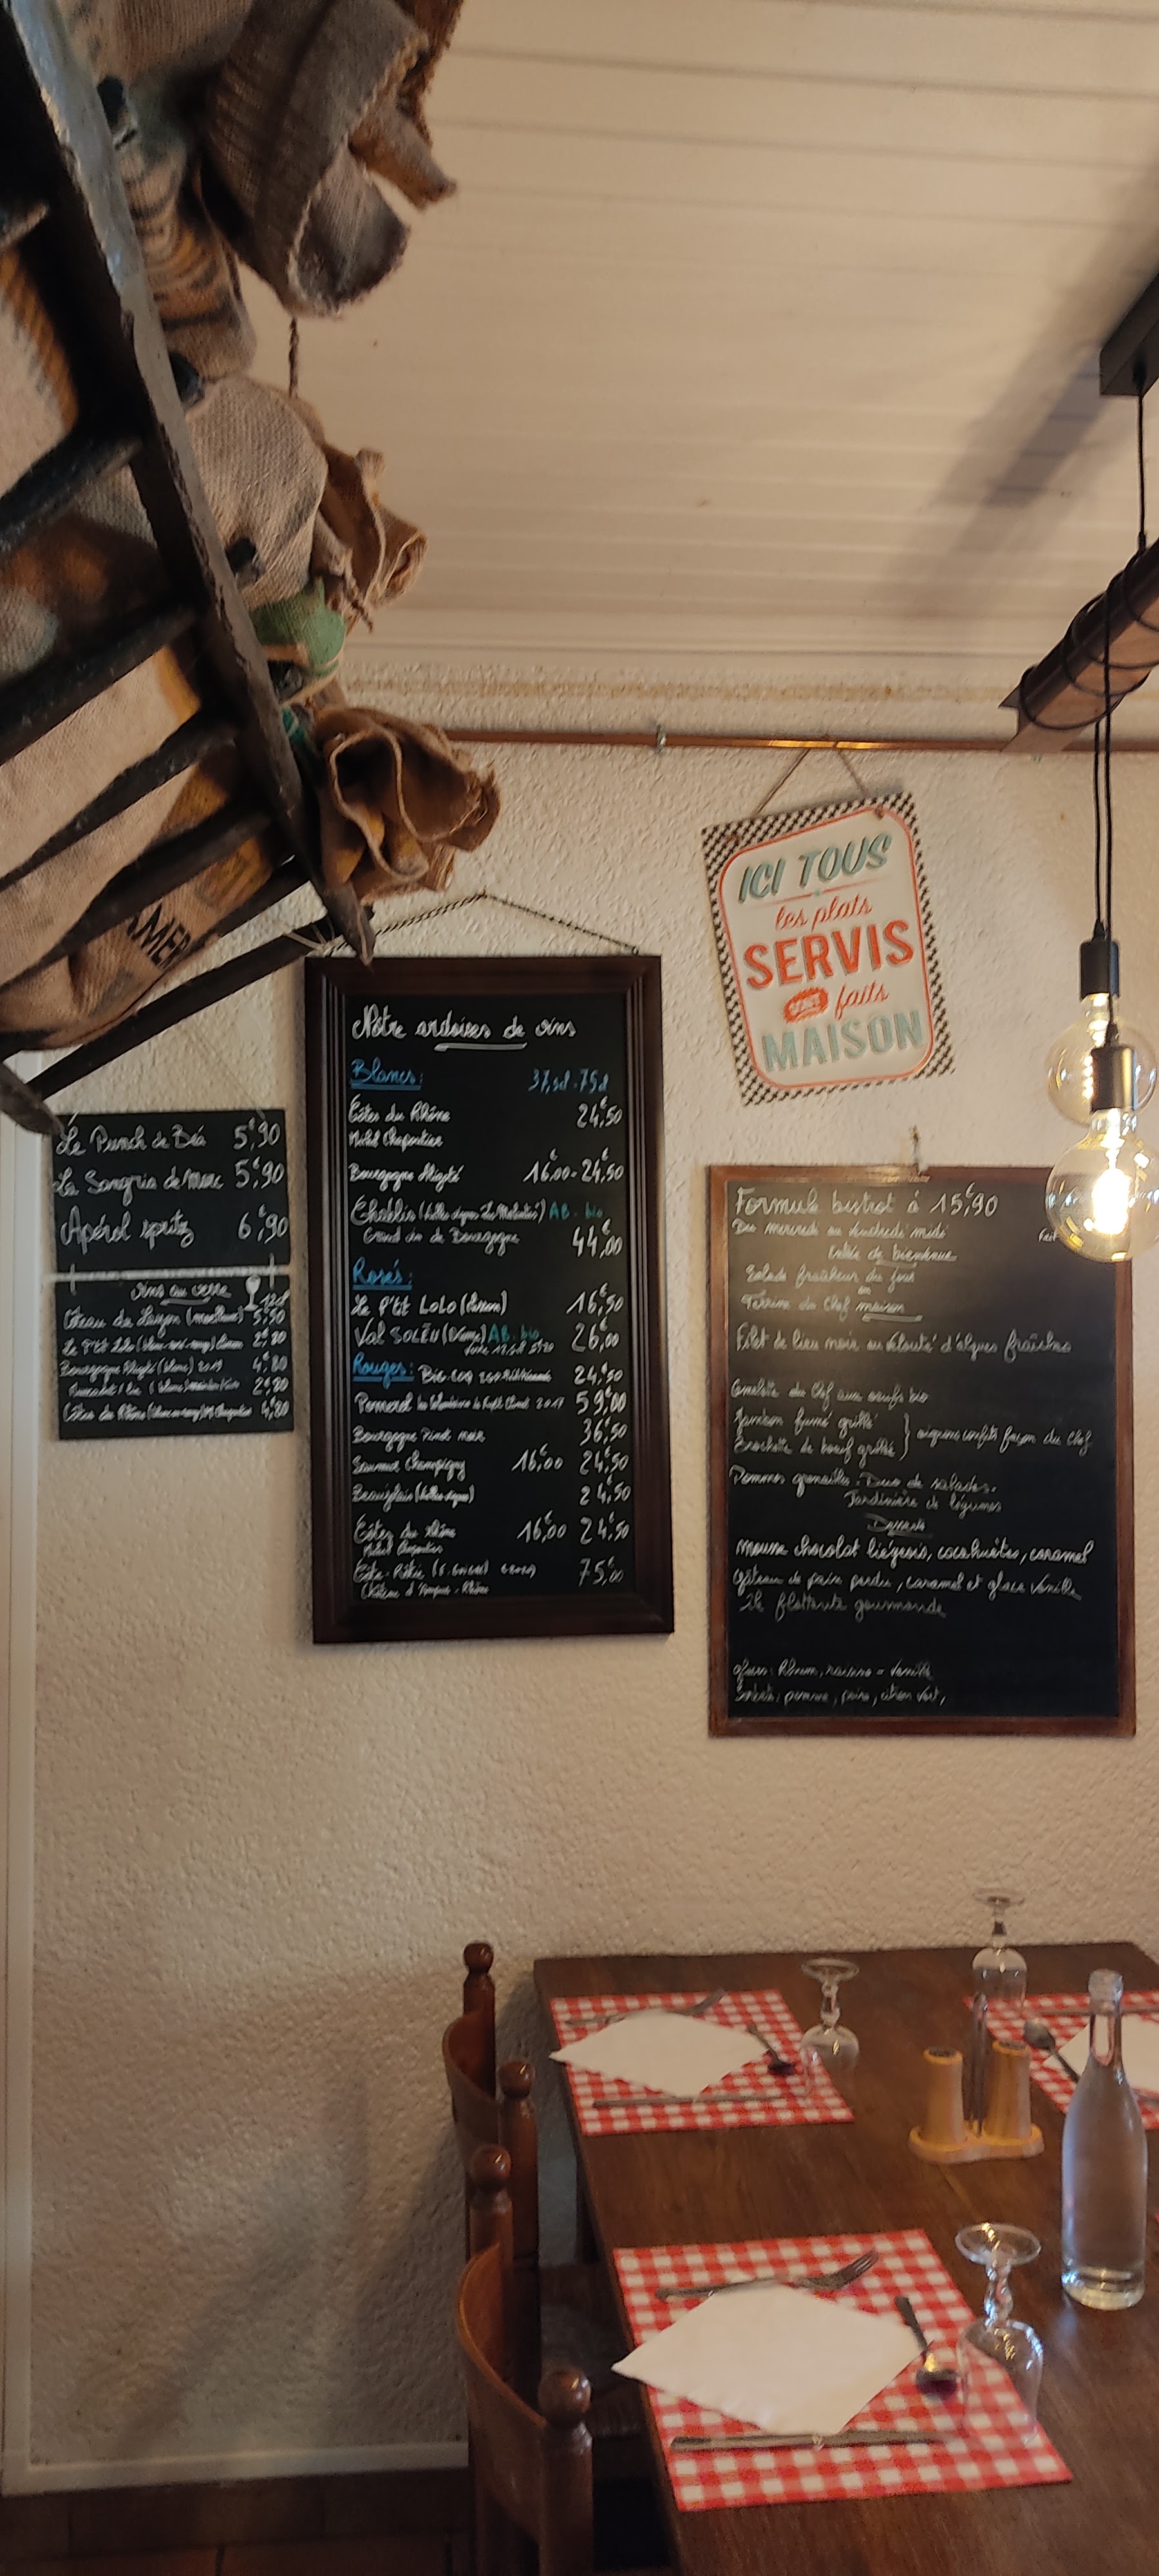 AMER
Le Punch de Béa 5€,90
La Sangria de Marc 5€,90
Apérol spritz 6€,90
Vins au verre 12cl
Côteau du Layon (moelleux) 5,50
Le P'tit Lolo 2€,80
Bourgogne Aligoté (blanc) 2019 4€,80
2€,80
Côtes du Rhône 4€,80
Nôtre ardoises de vins
Blancs: 37,5cl - 75cl
Côtes du Rhône 24€,50
Michel Chapoutier
Bourgogne Aligoté 16€,00 - 24€,50
Chablis AB - bio
Grand vin de Bourgogne 44€,00
Rosés:
Le P'tit LoLo 16€,50
Val SOLÉU AB. bio 26€,00
Rouges: Bio coq 24€,50
Pomerol 2017 59€,00
Bourgogne Pinot noir 36€,50
Saumur Champigny 16€,00 24€,50
Beaujolais 24€,50
Côtes du Rhône 16€,00 24€,50
Michel Chapoutier
Côte-Rôtie 75€,00
Château d'Ampuis - Rhône
ICI TOUS
les plats
SERVIS
sont faits
MAISON
Formule bistrot à 15€,90
Du mercredi au vendredi midi
Entrée de bienvenue
Salade fraîcheur du jour
ou
Terrine du Chef maison
Filet de lieu noir au velouté d'algues fraîches
Omelette du Chef aux oeufs bio
Jambon fumé grillé
Brochette de boeuf grillée } oignons confits façon du Chef
Pommes grenailles. Duo de salades.
Jardinière de légumes
Desserts
Mousse chocolat liégeois, cacahuètes, caramel
Gâteau de pain perdu, caramel et glace vanille
île flottante gourmande
glaces: Rhum, raisins - Vanille
Sorbets: pomme, poire, citron vert,